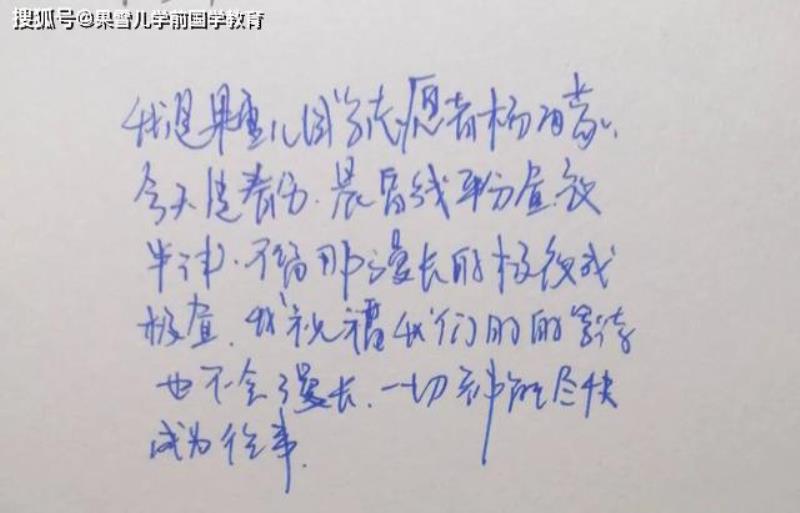 搜狐号@果雪儿学前国学教育
我是果雪儿国学志愿者杨雨蒙，
今天是春分，晨昏线平分昼夜
半球，不管那漫长的极夜或
极昼，我祝福我们的的等待
也不会漫长，一切都能尽快
成为往事